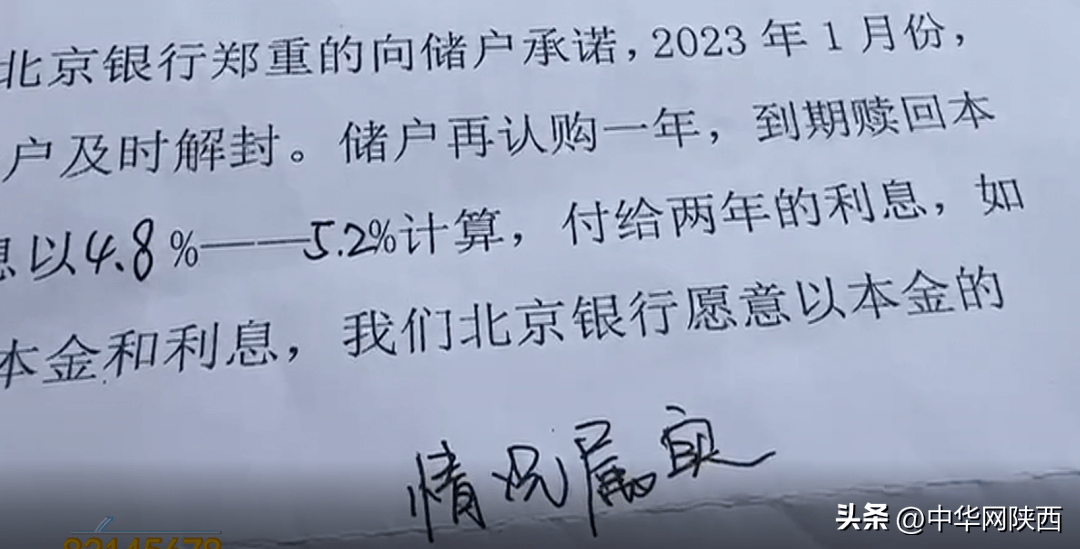 北京银行郑重的向储户承诺，2023年1月份，
户及时解封。储户再认购一年，到期赎回本
息以4.8%——5.2%计算，付给两年的利息，如
本金和利息，我们北京银行愿意以本金的
情况属实
头条 @中华网陕西